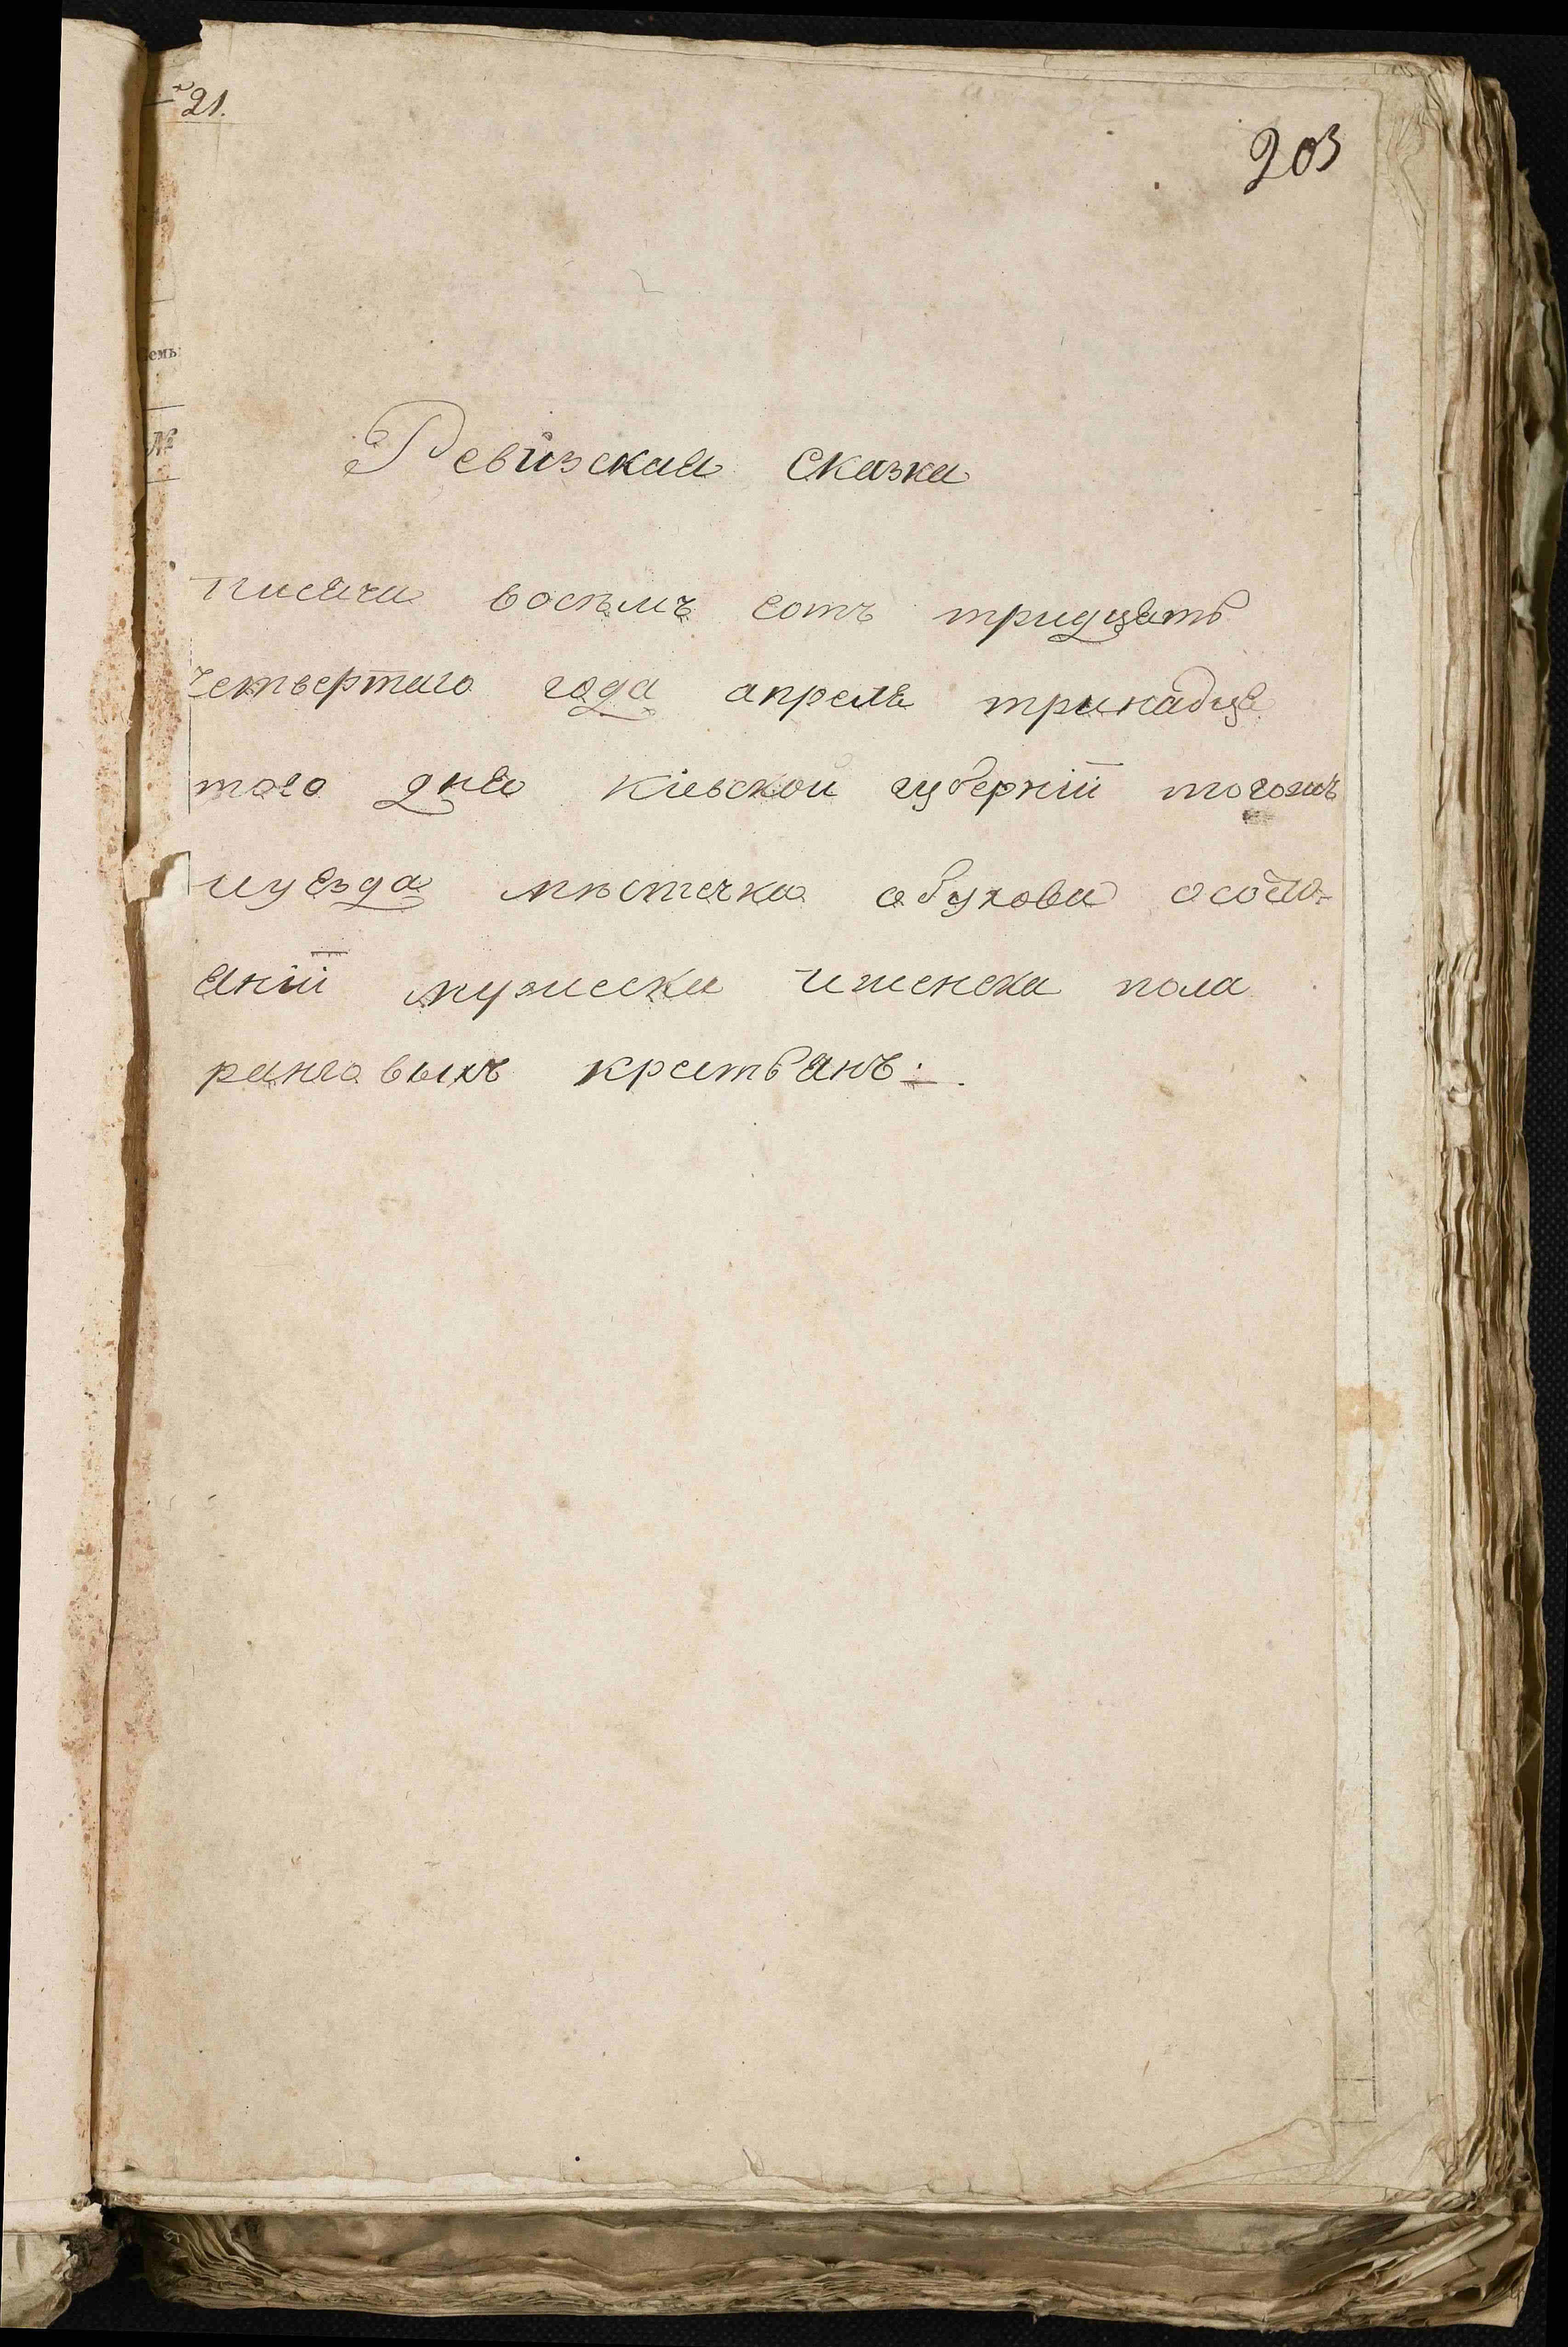 № 21.
203
емь:
№
Ревизская сказка
тисяча восѣмъ сотъ тридцять
четвертаго года апреля тринадця
того дня Кіевской губерніи тогожъ
иуезда мѣстечка обухова осостоя-
яніи мужеска иженска пола
ранговыхъ крстьянъ:.